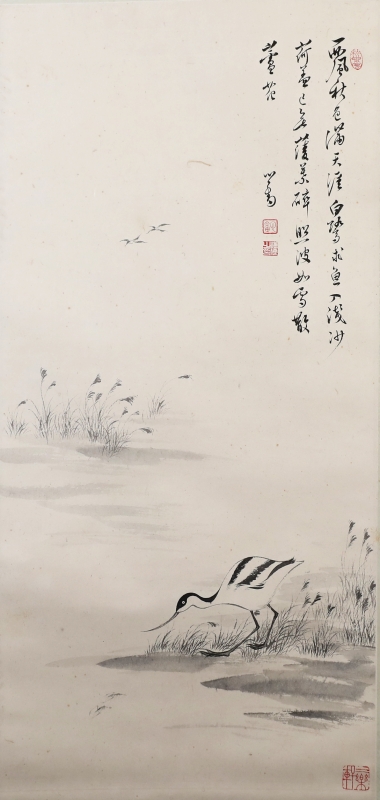 西風秋色滿天涯白鷺求魚入淺沙
荷蓋已無菱葉碎照波如雪散
蘆花
心畬